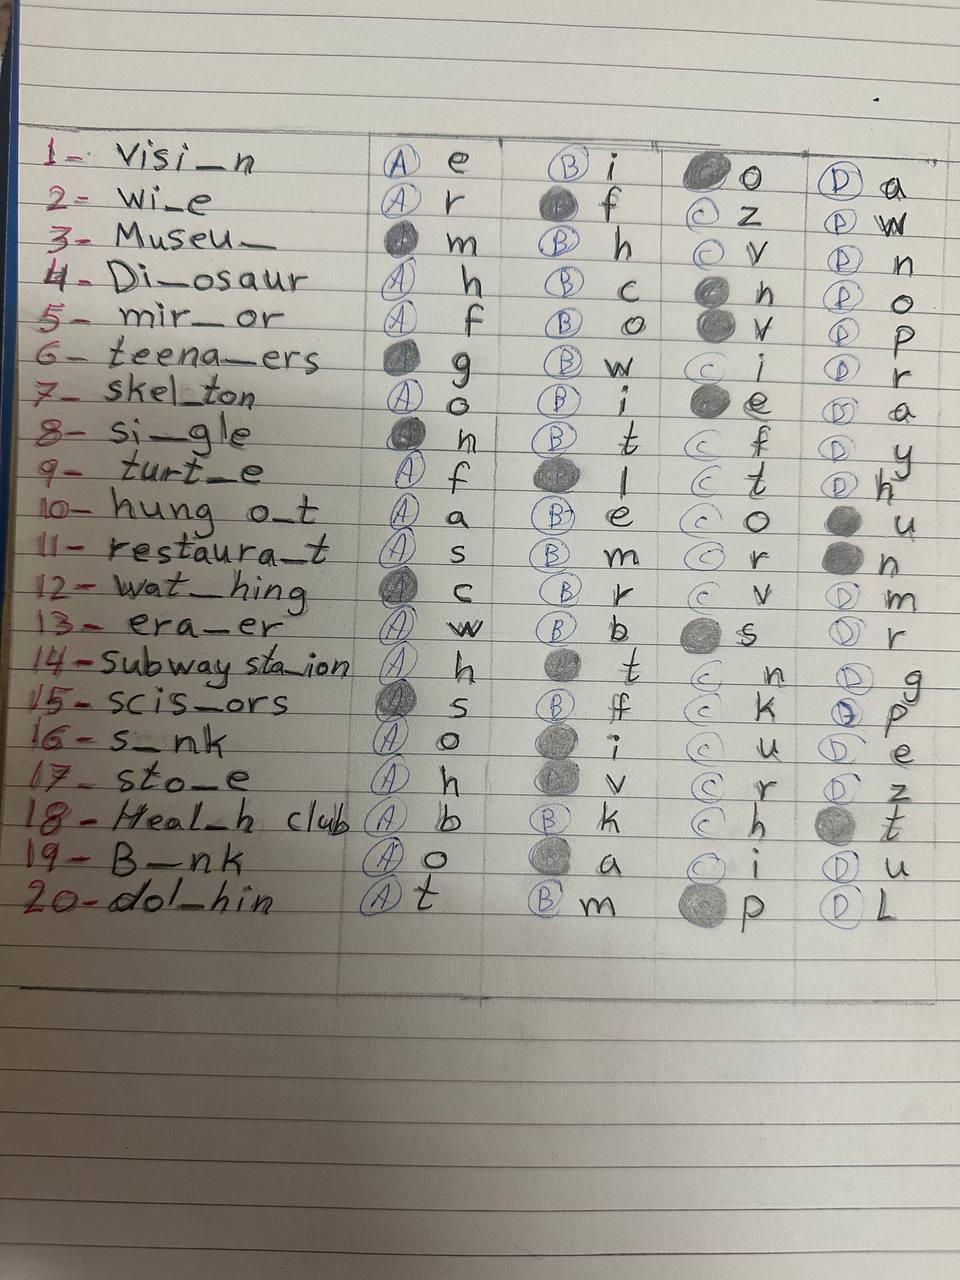 1- Visi_n A e B i o D a
2- wi_e A r B f C z D w
3- Museu_ m B h C v D n
4- Di_osaur A h B c n D o
5- mir_or A f B o v D p
6- teena_ers g B w C i D r
7- skel_ton A o B i e D a
8- si_gle n B t C f D y
9- turt_e A f l C t D h
10- hung o_t A a B e C o u
11- restaura_t A s B m C r n
12- wat_hing A c B r C v D m
13- era_er A w B b s D r
14- Subway sta_ion A h t C n D g
15- scis_ors A s B ff C k D p
16- s_nk A o i C u D e
17- sto_e A h B v C r D z
18- Heal_h club A b B k C h t
19- B_nk A o B a C i D u
20- dol_hin A t B m p D L